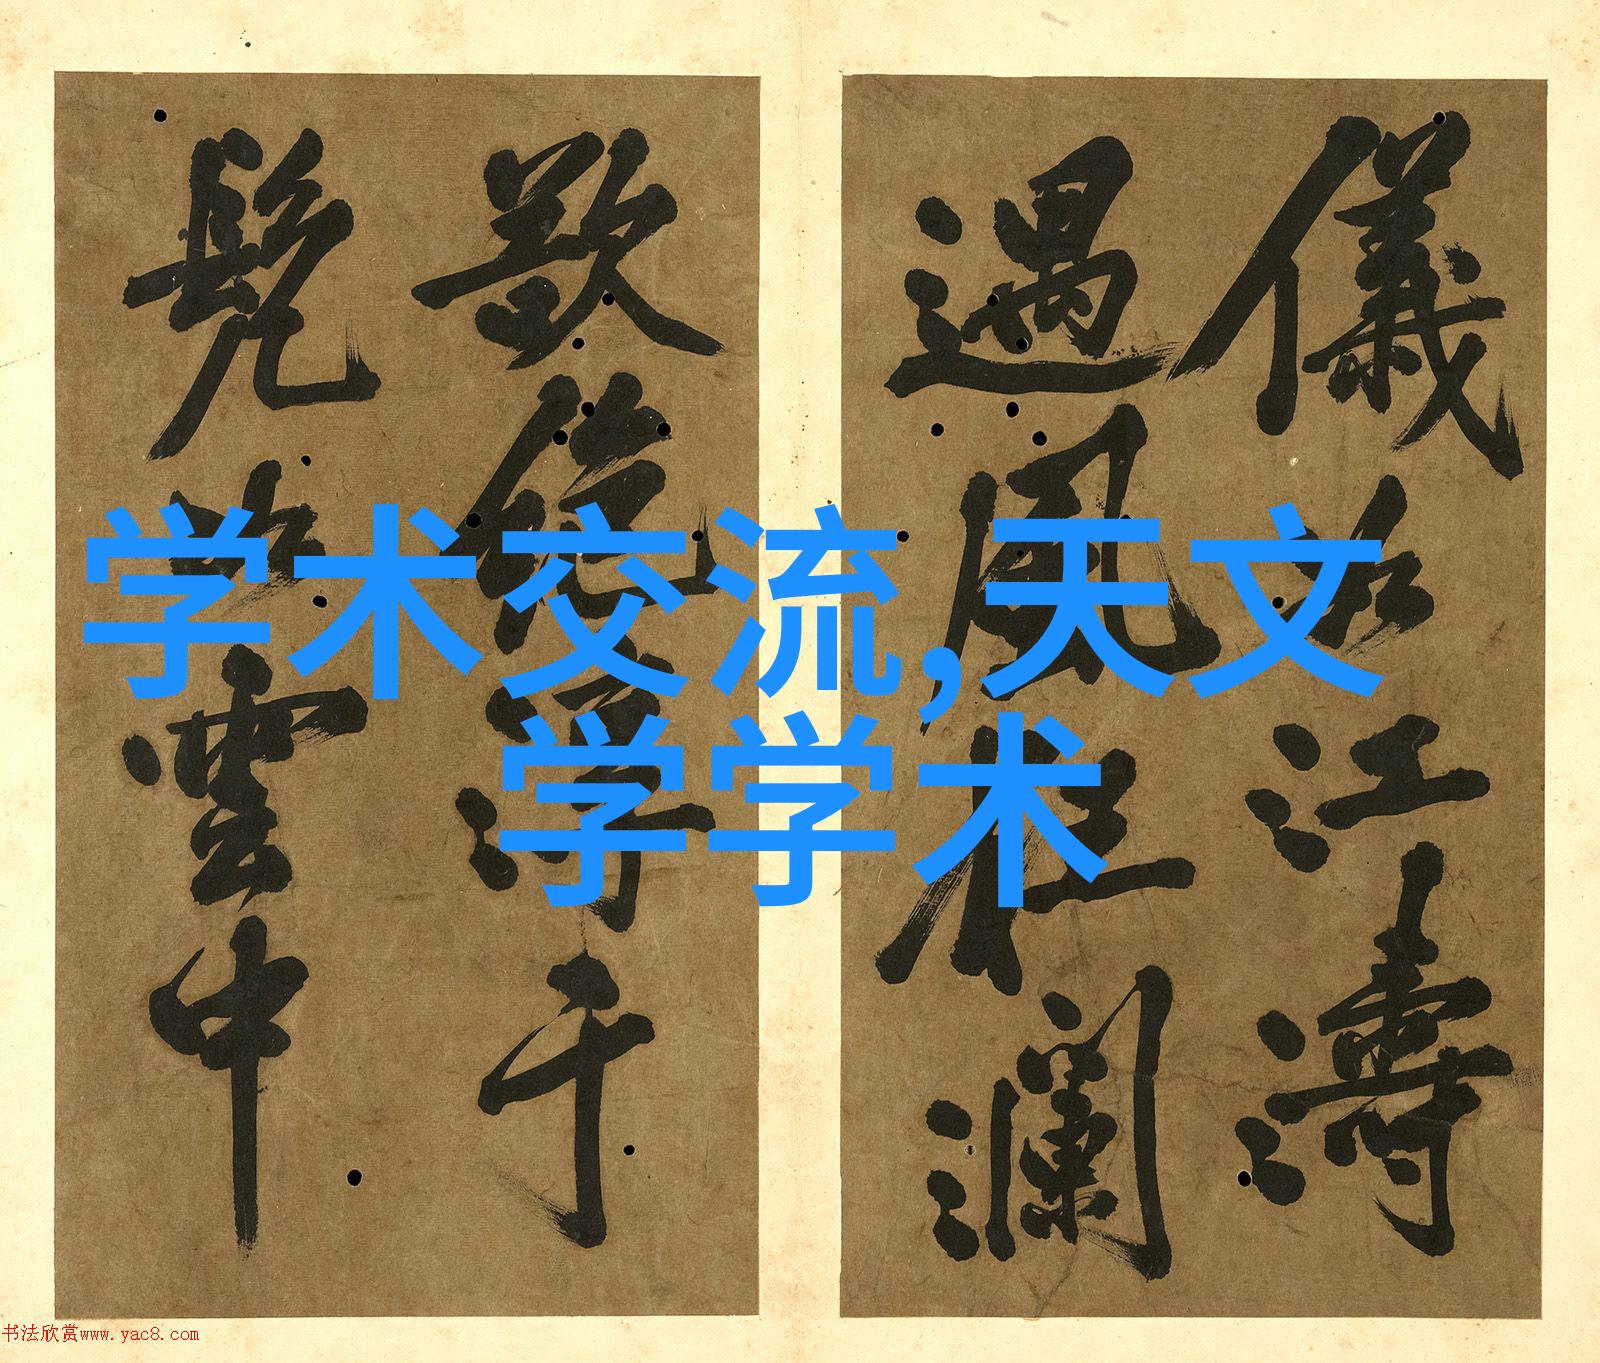 儀如江濤
遇風狂瀾
浮于
如雲中
学术交流,天文
学学术
书法欣赏www.yac8.com